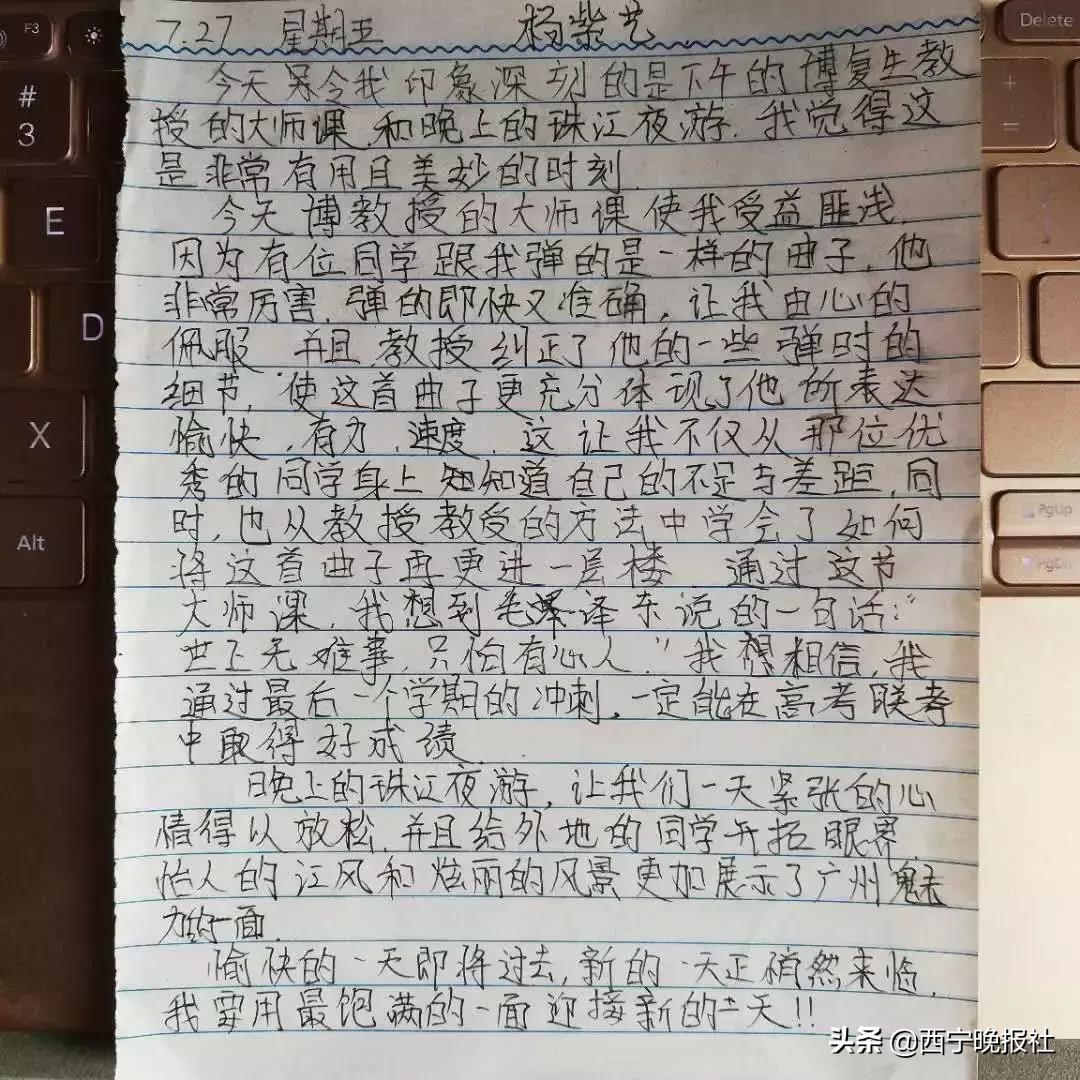 7.27 星期五 杨紫艺
今天另令我印象深刻的是下午的博复生教
授的大师课,和晚上的珠江夜游.我觉得这
是非常有用且美妙的时刻.
今天博教授的大师课使我受益匪浅.
因为有位同学跟我弹的是一样的曲子,他
非常厉害,弹的即快又准确,让我由心的
佩服.并且教授纠正了他的一些弹时的
细节,使这首曲子更充分体现了他所表达
愉快,有力,速度.这让我不仅从那位优
秀的同学身上知知道自己的不足与差距,同
时,也从教授教受的方法中学会了如何
将这首曲子再更进一层楼 通过这节
大师课,我想到毛泽泽东说的一句话:"
世上无难事,只怕有心人."我想相信,我
通过最后一个学期的冲刺,一定能在高考联考
中取得好成绩.
晚上的珠江夜游,让我们一天紧张的心
情得以放松,并且给外地的同学开拓眼界.
怡人的江风和炫丽的风景更加展示了广州魅
力的一面.
愉快的一天即将过去,新的一天正悄然来临,
我要用最饱满的一面迎接新的一天!!
F3
Delete
#
3
+
=
E
D
X
Alt
PgUp
PgDn
头条 @西宁晚报社